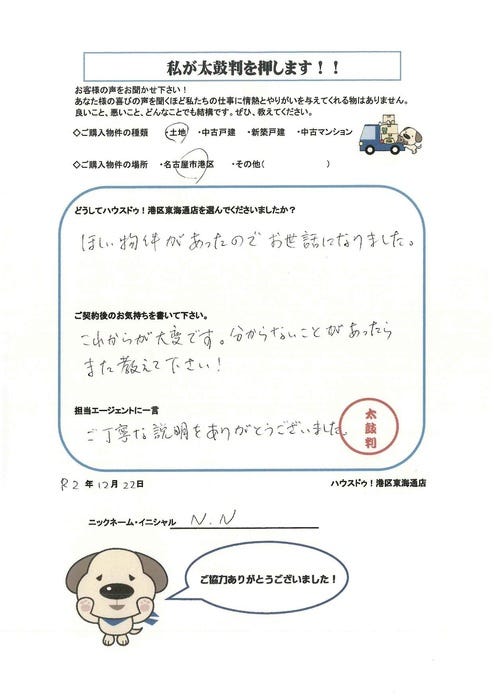 私が太鼓判を押します！！
お客様の声をお聞かせ下さい！
あなた様の喜びの声を聞くほど私たちの仕事に情熱とやりがいを与えてくれる物はありません。
良いこと、悪いこと、どんなことでも結構です。ぜひ、教えてください。
◇ご購入物件の種類 ・土地 ・中古戸建 ・新築戸建 ・中古マンション
◇ご購入物件の場所 ・名古屋市港区 ・その他( )
どうしてハウスドゥ！港区東海通店を選んでくださいましたか？
ほしい物件があったので お世話になりました。
ご契約後のお気持ちを書いて下さい。
これからが大変です。分からないことがあったら
また教えて下さい！
担当エージェントに一言
ご丁寧な説明をありがとうございました。
太鼓判
R2 年 12月 22日
ハウスドゥ！港区東海通店
ニックネーム・イニシャル N.N
ご協力ありがとうございました！